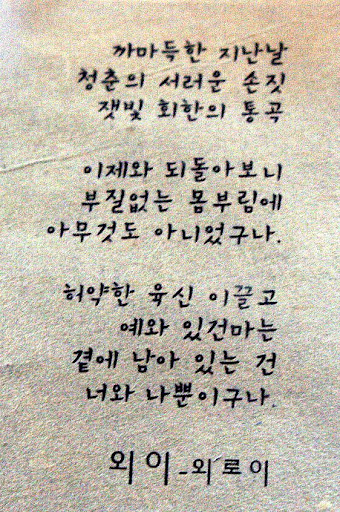 까마득한 지난날
청춘의 서러운 손짓
잿빛 회한의 통곡
이제와 되돌아보니
부질없는 몸부림에
아무것도 아니었구나.
허약한 육신 이끌고
예와 있건마는
곁에 남아 있는 건
너와 나뿐이구나.
외이-외로이